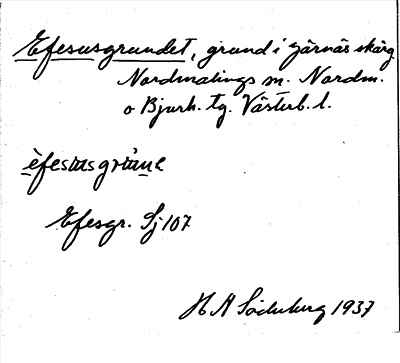 Efesusgrundet, grund i Järnäs skärg.
Nordmalings sn. Nordm.
o Bjurh. tg. Västerb. l.
èfesusgrùne
Efesgr. Sj 107
H A Söderberg 1937